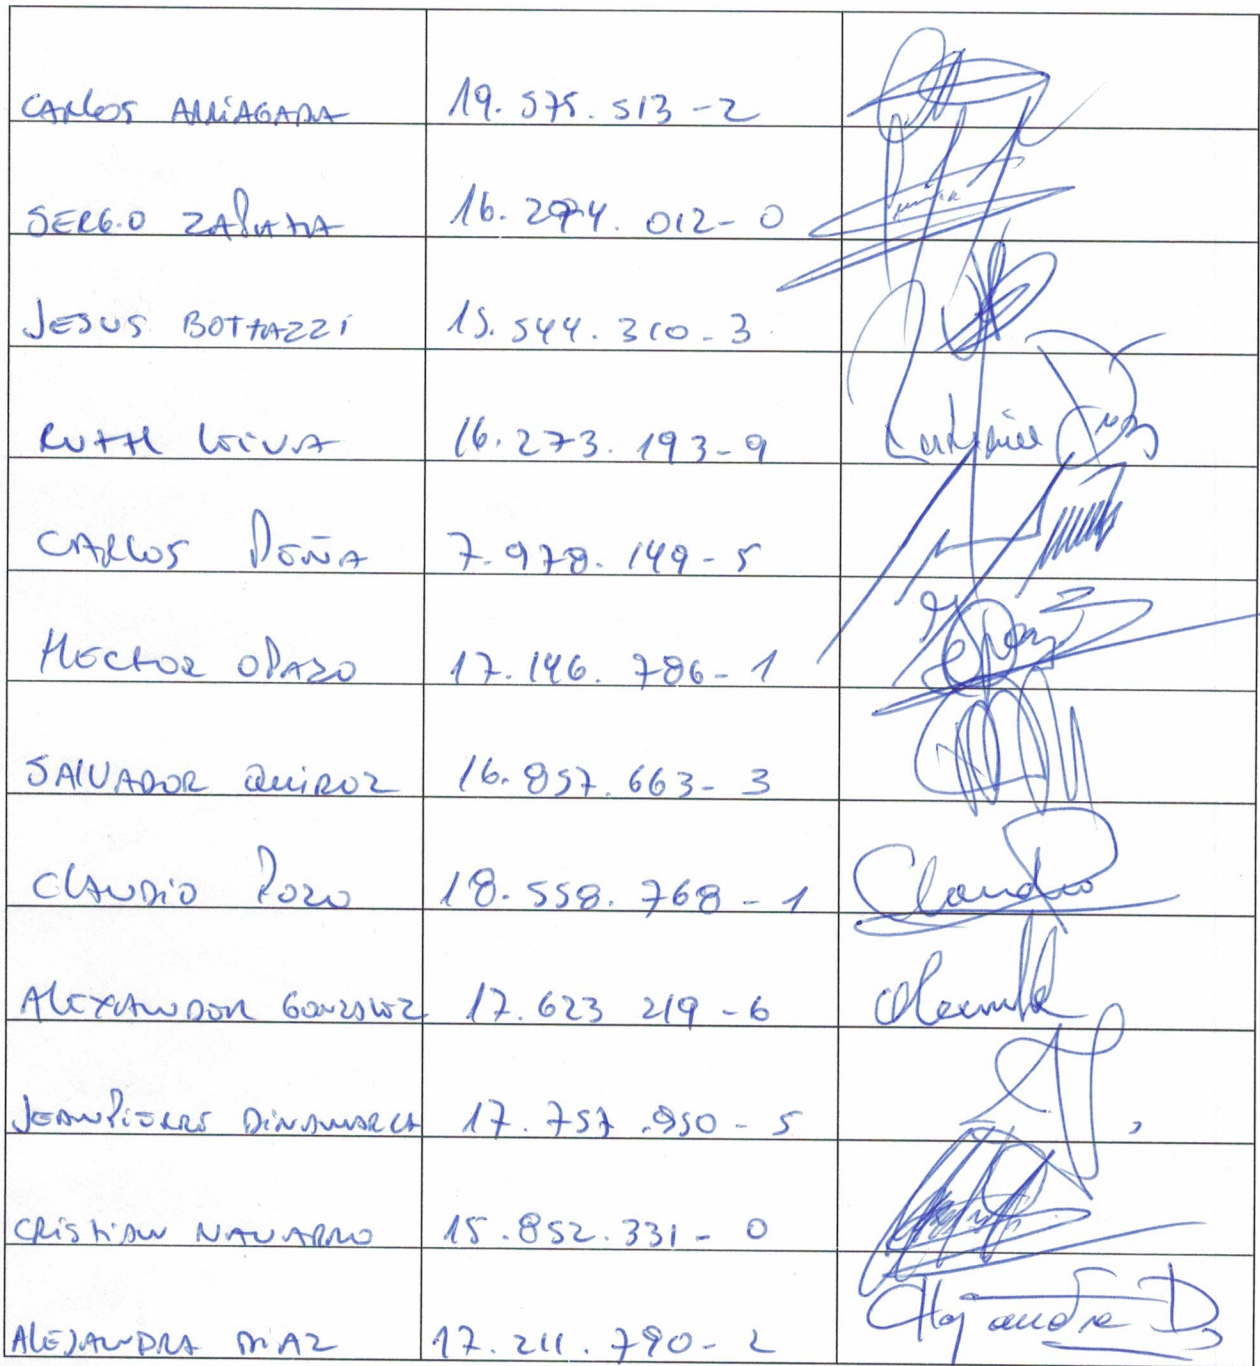 CARLOS ARRIAGADA 19.575.513-2
SERGIO ZAPATA 16.274.012-0
JESUS BOTTAZZI 15.544.310-3
RUTH LEIVA 16.273.193-9
CARLOS PEÑA 7.978.149-5
HECTOR OPAZO 17.146.786-1
SALVADOR QUIROZ 16.857.663-3
CLAUDIO POZO 18.558.768-1 Claudio
ALEXANDER GONZALEZ 17.623 219-6
JEANPIERRE DINAMARCA 17.757.950-5
CRISTIAN NAVARRO 15.852.331-0
ALEJANDRA DIAZ 17.211.790-2 Alejandra D